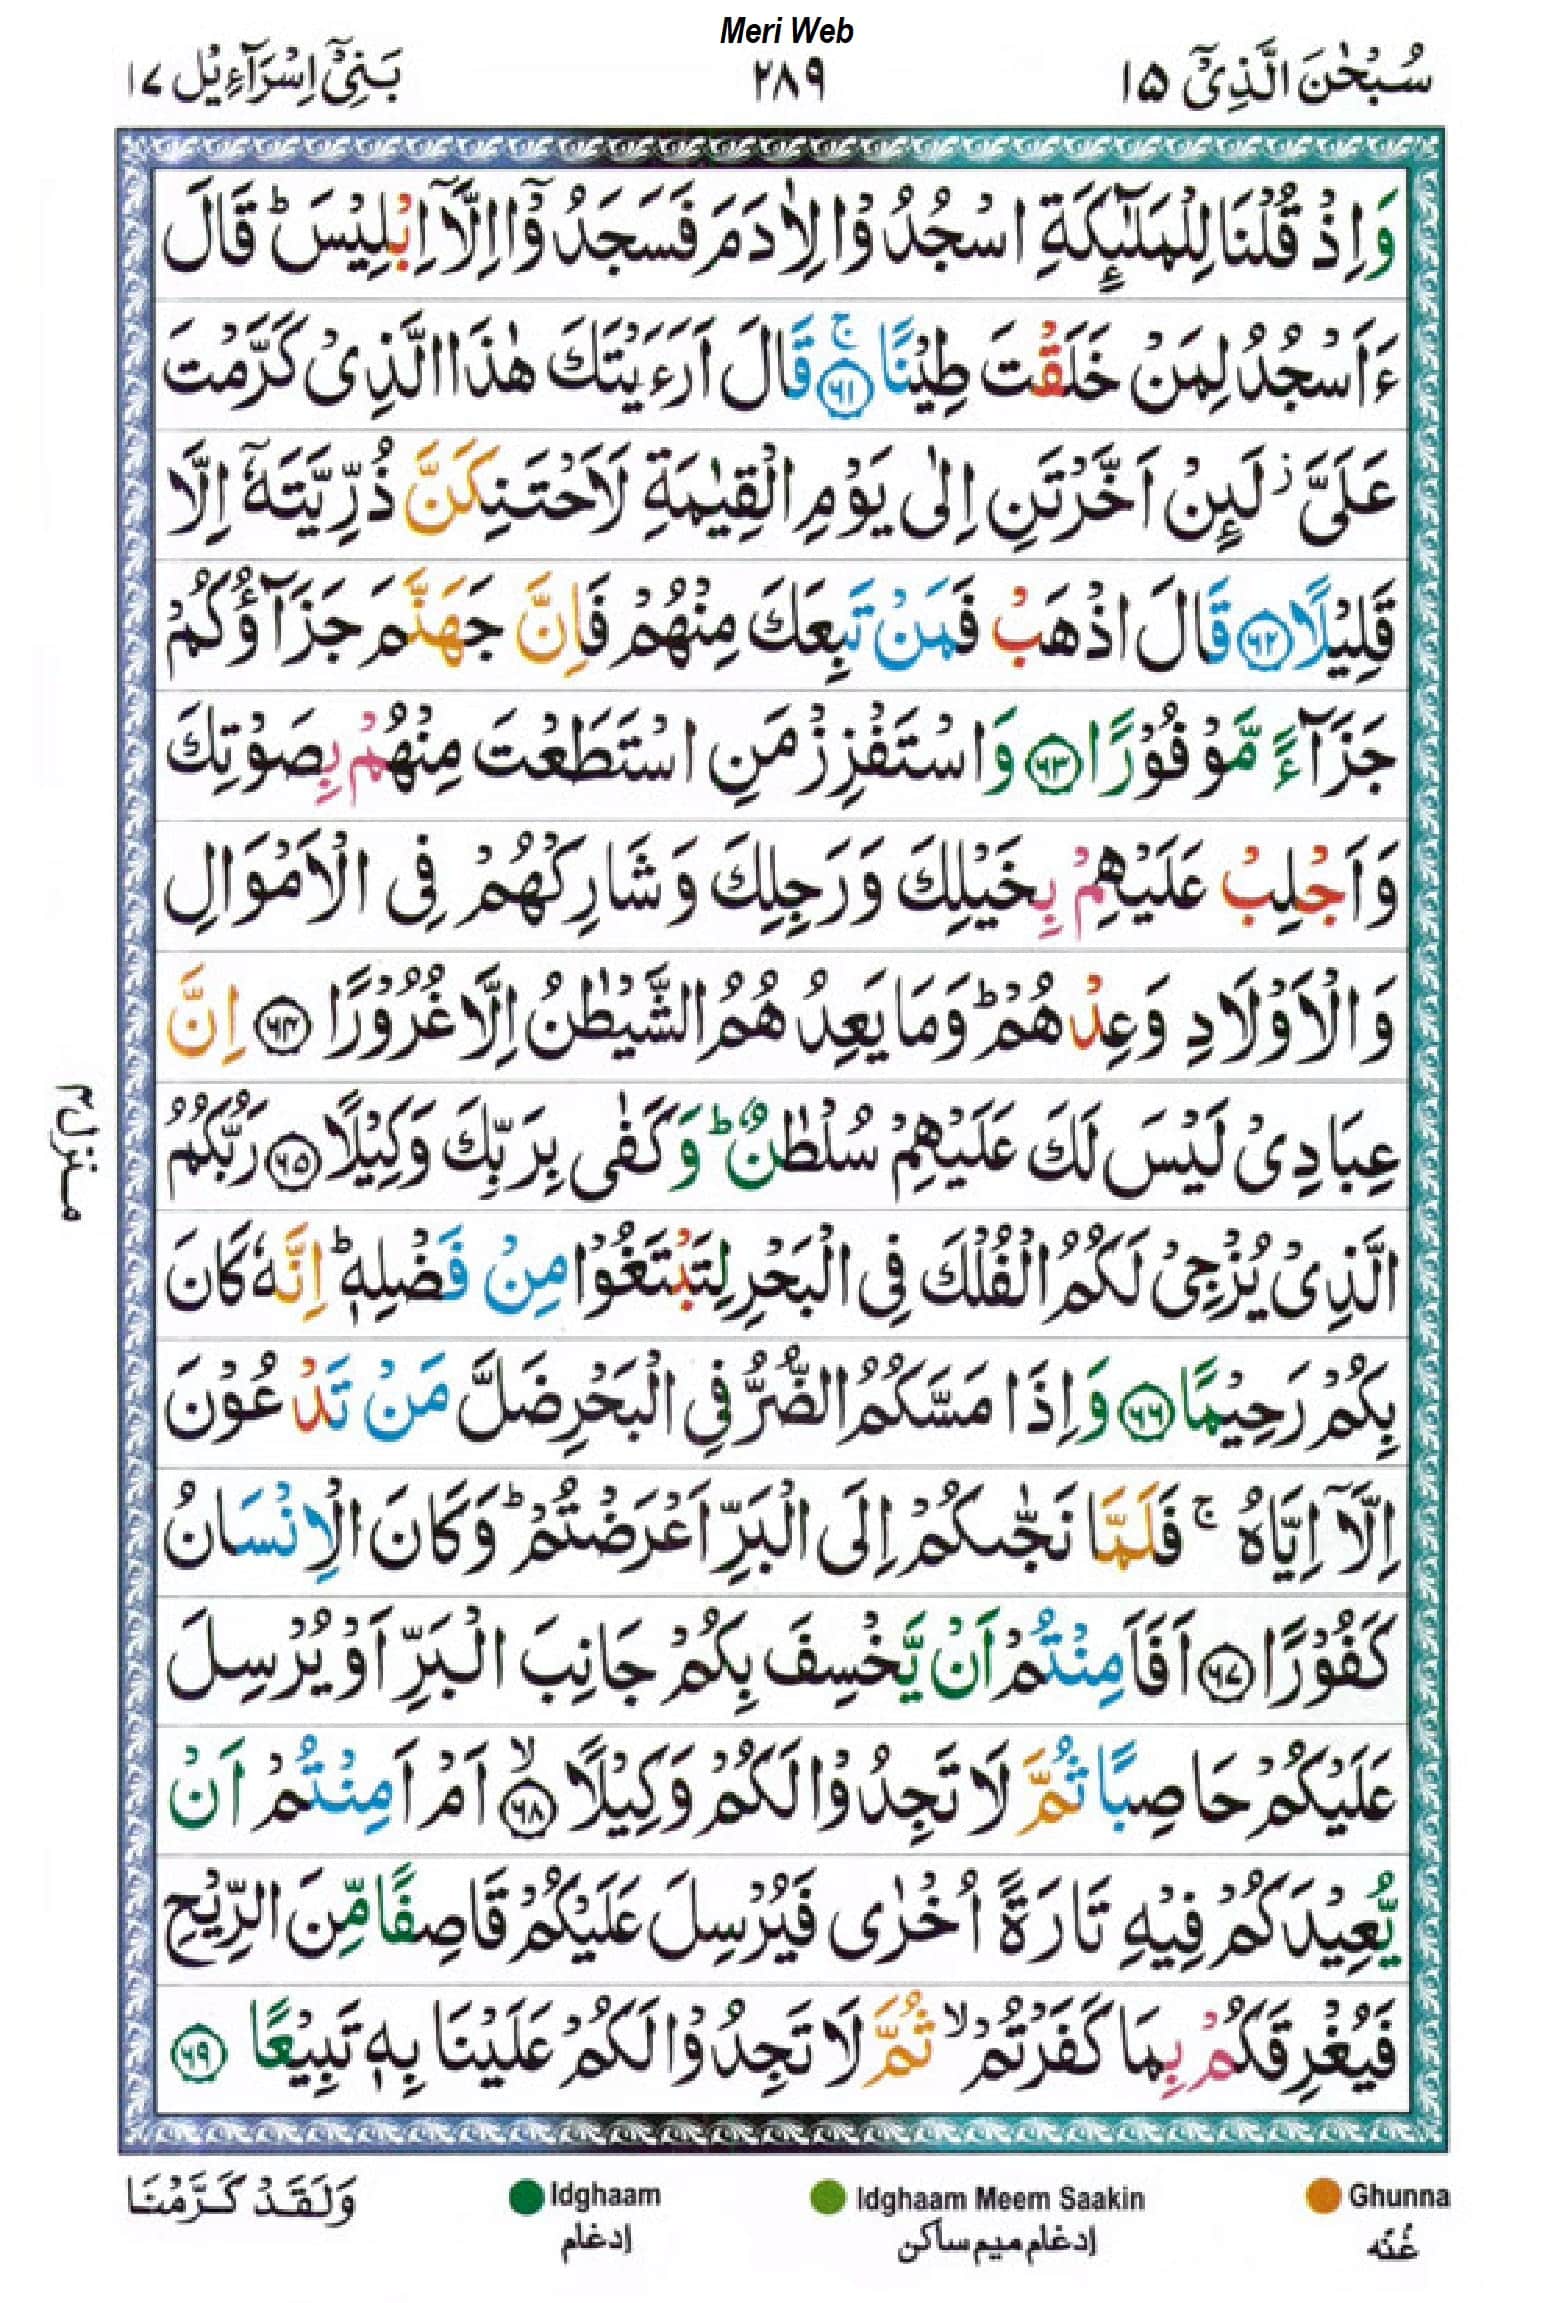 Meri Web
سُبْحٰنَ الَّذِیْۤ ۱۵
۲۸۹
بَنِیْۤ اِسْرَآءِیْل ۱۷
وَ اِذْ قُلْنَا لِلْمَلٰٓىِٕكَةِ اسْجُدُوْا لِاٰدَمَ فَسَجَدُوْۤا اِلَّاۤ اِبْلِیْسَ ؕ قَالَ
ءَاَسْجُدُ لِمَنْ خَلَقْتَ طِیْنًا ۚ﴿۶۱﴾ قَالَ اَرَءَیْتَكَ هٰذَا الَّذِیْ كَرَّمْتَ
عَلَیَّ ؗ لَىِٕنْ اَخَّرْتَنِ اِلٰی یَوْمِ الْقِیٰمَةِ لَاَحْتَنِكَنَّ ذُرِّیَّتَهٗۤ اِلَّا
قَلِیْلًا ﴿۶۲﴾ قَالَ اذْهَبْ فَمَنْ تَبِعَكَ مِنْهُمْ فَاِنَّ جَهَنَّمَ جَزَآؤُكُمْ
جَزَآءً مَّوْفُوْرًا ﴿۶۳﴾ وَ اسْتَفْزِزْ مَنِ اسْتَطَعْتَ مِنْهُمْ بِصَوْتِكَ
وَ اَجْلِبْ عَلَیْهِمْ بِخَیْلِكَ وَ رَجِلِكَ وَ شَارِكْهُمْ فِی الْاَمْوَالِ
وَ الْاَوْلَادِ وَ عِدْهُمْ ؕ وَ مَا یَعِدُهُمُ الشَّیْطٰنُ اِلَّا غُرُوْرًا ﴿۶۴﴾ اِنَّ
عِبَادِیْ لَیْسَ لَكَ عَلَیْهِمْ سُلْطٰنٌ ؕ وَ كَفٰی بِرَبِّكَ وَكِیْلًا ﴿۶۵﴾ رَبُّكُمُ
الَّذِیْ یُزْجِیْ لَكُمُ الْفُلْكَ فِی الْبَحْرِ لِتَبْتَغُوْا مِنْ فَضْلِهٖ ؕ اِنَّهٗ كَانَ
بِكُمْ رَحِیْمًا ﴿۶۶﴾ وَ اِذَا مَسَّكُمُ الضُّرُّ فِی الْبَحْرِ ضَلَّ مَنْ تَدْعُوْنَ
اِلَّاۤ اِیَّاهُ ۚ فَلَمَّا نَجّٰىكُمْ اِلَی الْبَرِّ اَعْرَضْتُمْ ؕ وَ كَانَ الْاِنْسَانُ
كَفُوْرًا ﴿۶۷﴾ اَفَاَمِنْتُمْ اَنْ یَّخْسِفَ بِكُمْ جَانِبَ الْبَرِّ اَوْ یُرْسِلَ
عَلَیْكُمْ حَاصِبًا ثُمَّ لَا تَجِدُوْا لَكُمْ وَكِیْلًا ۙ﴿۶۸﴾ اَمْ اَمِنْتُمْ اَنْ
یُّعِیْدَكُمْ فِیْهِ تَارَةً اُخْرٰی فَیُرْسِلَ عَلَیْكُمْ قَاصِفًا مِّنَ الرِّیْحِ
فَیُغْرِقَكُمْ بِمَا كَفَرْتُمْ ۙ ثُمَّ لَا تَجِدُوْا لَكُمْ عَلَیْنَا بِهٖ تَبِیْعًا ﴿۶۹﴾
منزل ۴
وَلَقَدْ كَرَّمْنَا
Idghaam
ادغام
Idghaam Meem Saakin
ادغام میم ساکن
Ghunna
غُنّه